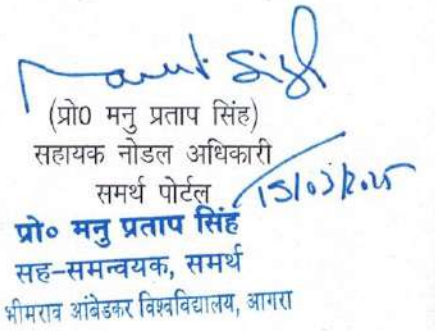 (प्रो0 मनु प्रताप सिंह)
सहायक नोडल अधिकारी
समर्थ पोर्टल
15/03/2025
प्रो० मनु प्रताप सिंह
सह-समन्वयक, समर्थ
भीमराव आंबेडकर विश्वविद्यालय, आगरा